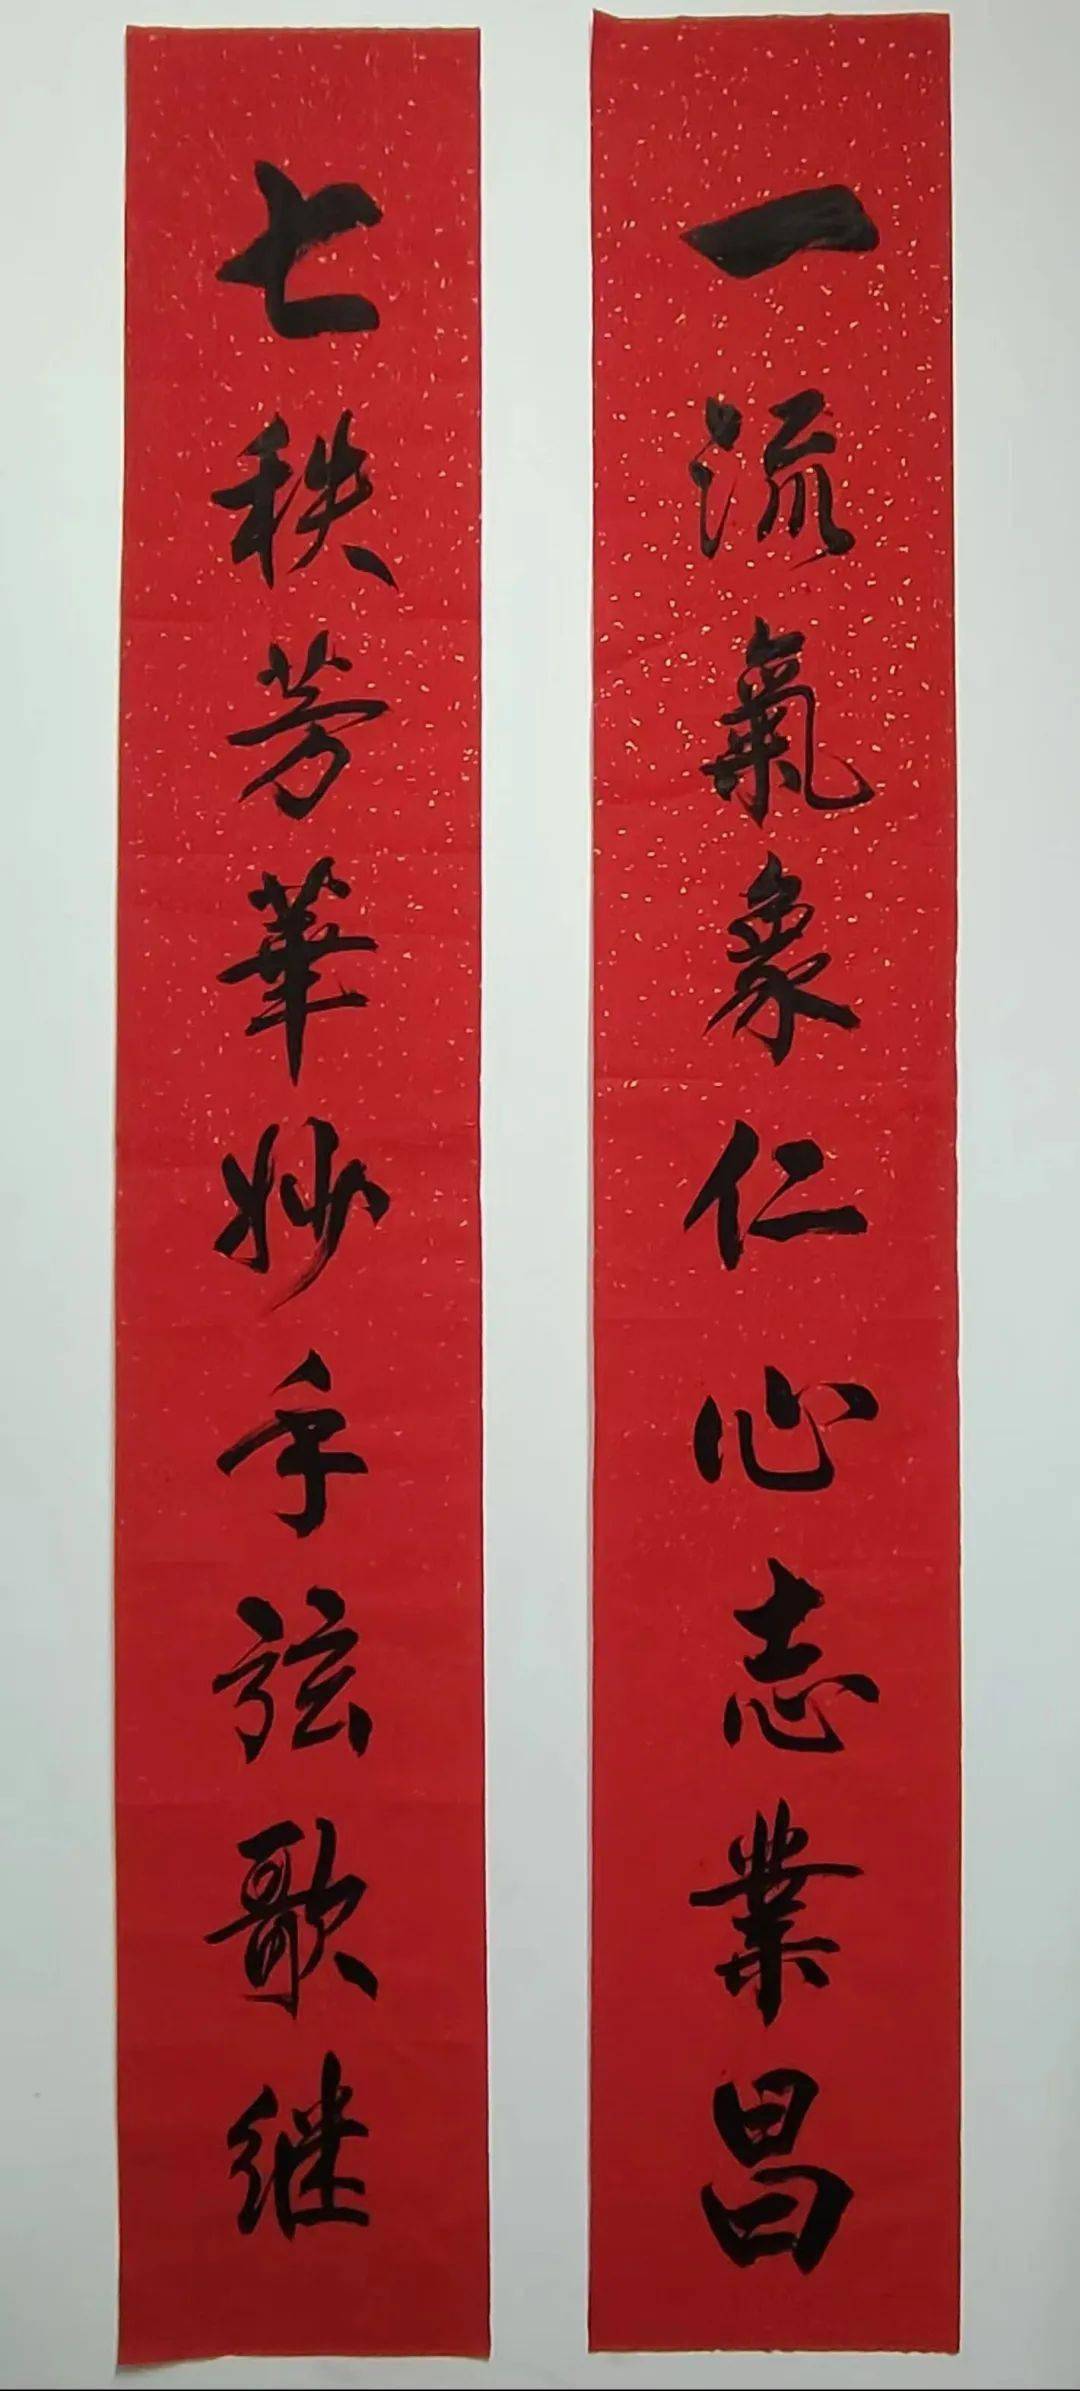 一流氣象仁心志業昌
七秩芳華妙手弦歌继